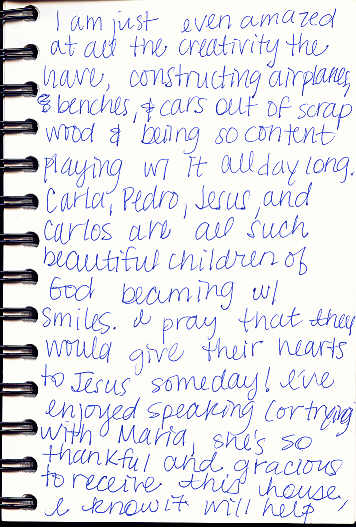 I am just even amazed
at all the creativity the
have, constructing airplanes,
& benches, & cars out of scrap
wood & being so content
playing w/ it all day long.
Carla, Pedro, Jesus, and
Carlos are all such
beautiful children of
God beaming w/
smiles. I pray that they
would give their hearts
to Jesus someday! I've
enjoyed speaking (or trying
with Maria, she's so
thankful and gracious
to receive this house,
I know it will help